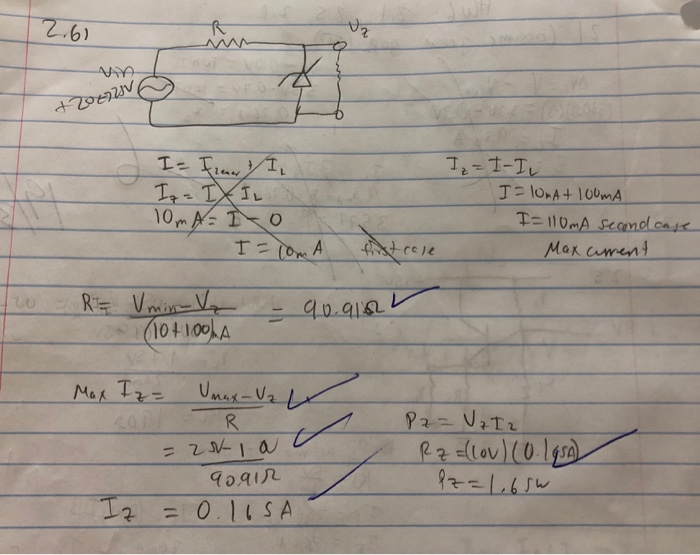 2.61
R
Vz
Vin
+20↔25V
I = Izener + IL
Iz = I - IL
10mA = I - 0
I = 10mA first case
Iz = I - IL
I = 10mA + 100mA
I = 110mA second case
Max current
R = Vmin - Vz / (10+100)mA = 90.91Ω ✓
Max Iz = Vmax - Vz / R ✓
= 25V - 10V / 90.91Ω ✓
Iz = 0.165A
Pz = VzIz
Pz = (10V)(0.165A) ✓
Pz = 1.65W